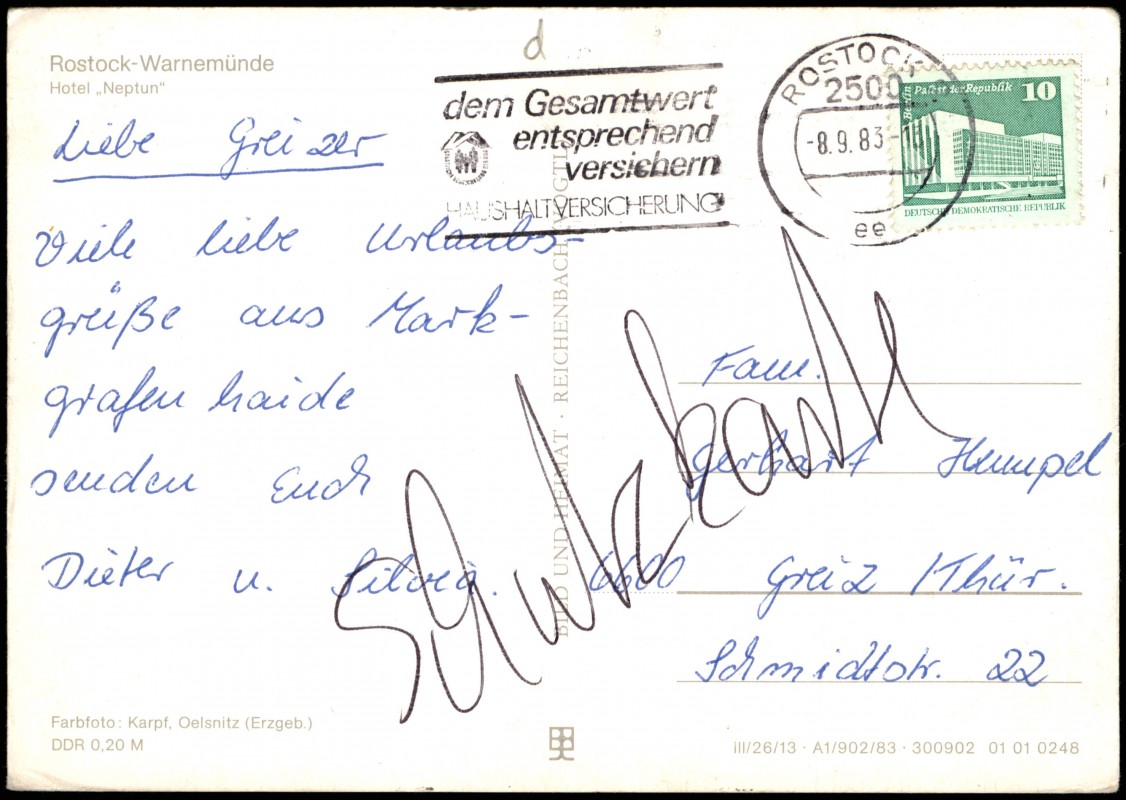 Rostock-Warnemünde
Hotel „Neptun"
d
dem Gesamtwert
entsprechend
versichern
HAUSHALTVERSICHERUNG
ROSTOCK
2500
-8.9.83-18
ee
Berlin Palast der Republik 10
DEUTSCHE DEMOKRATISCHE REPUBLIK
Liebe Greizer
Viele liebe Urlaubs-
grüße aus Mark-
grafenhaide
senden Euch
Dieter u. Silvia.
BILD UND HEIMAT · REICHENBACH
Fam.
Gerhart Hempel
6600 Greiz /Thür.
Schmidtstr. 22
Farbfoto: Karpf, Oelsnitz (Erzgeb.)
DDR 0,20 M
III/26/13 · A1/902/83 · 300902 01 01 0248